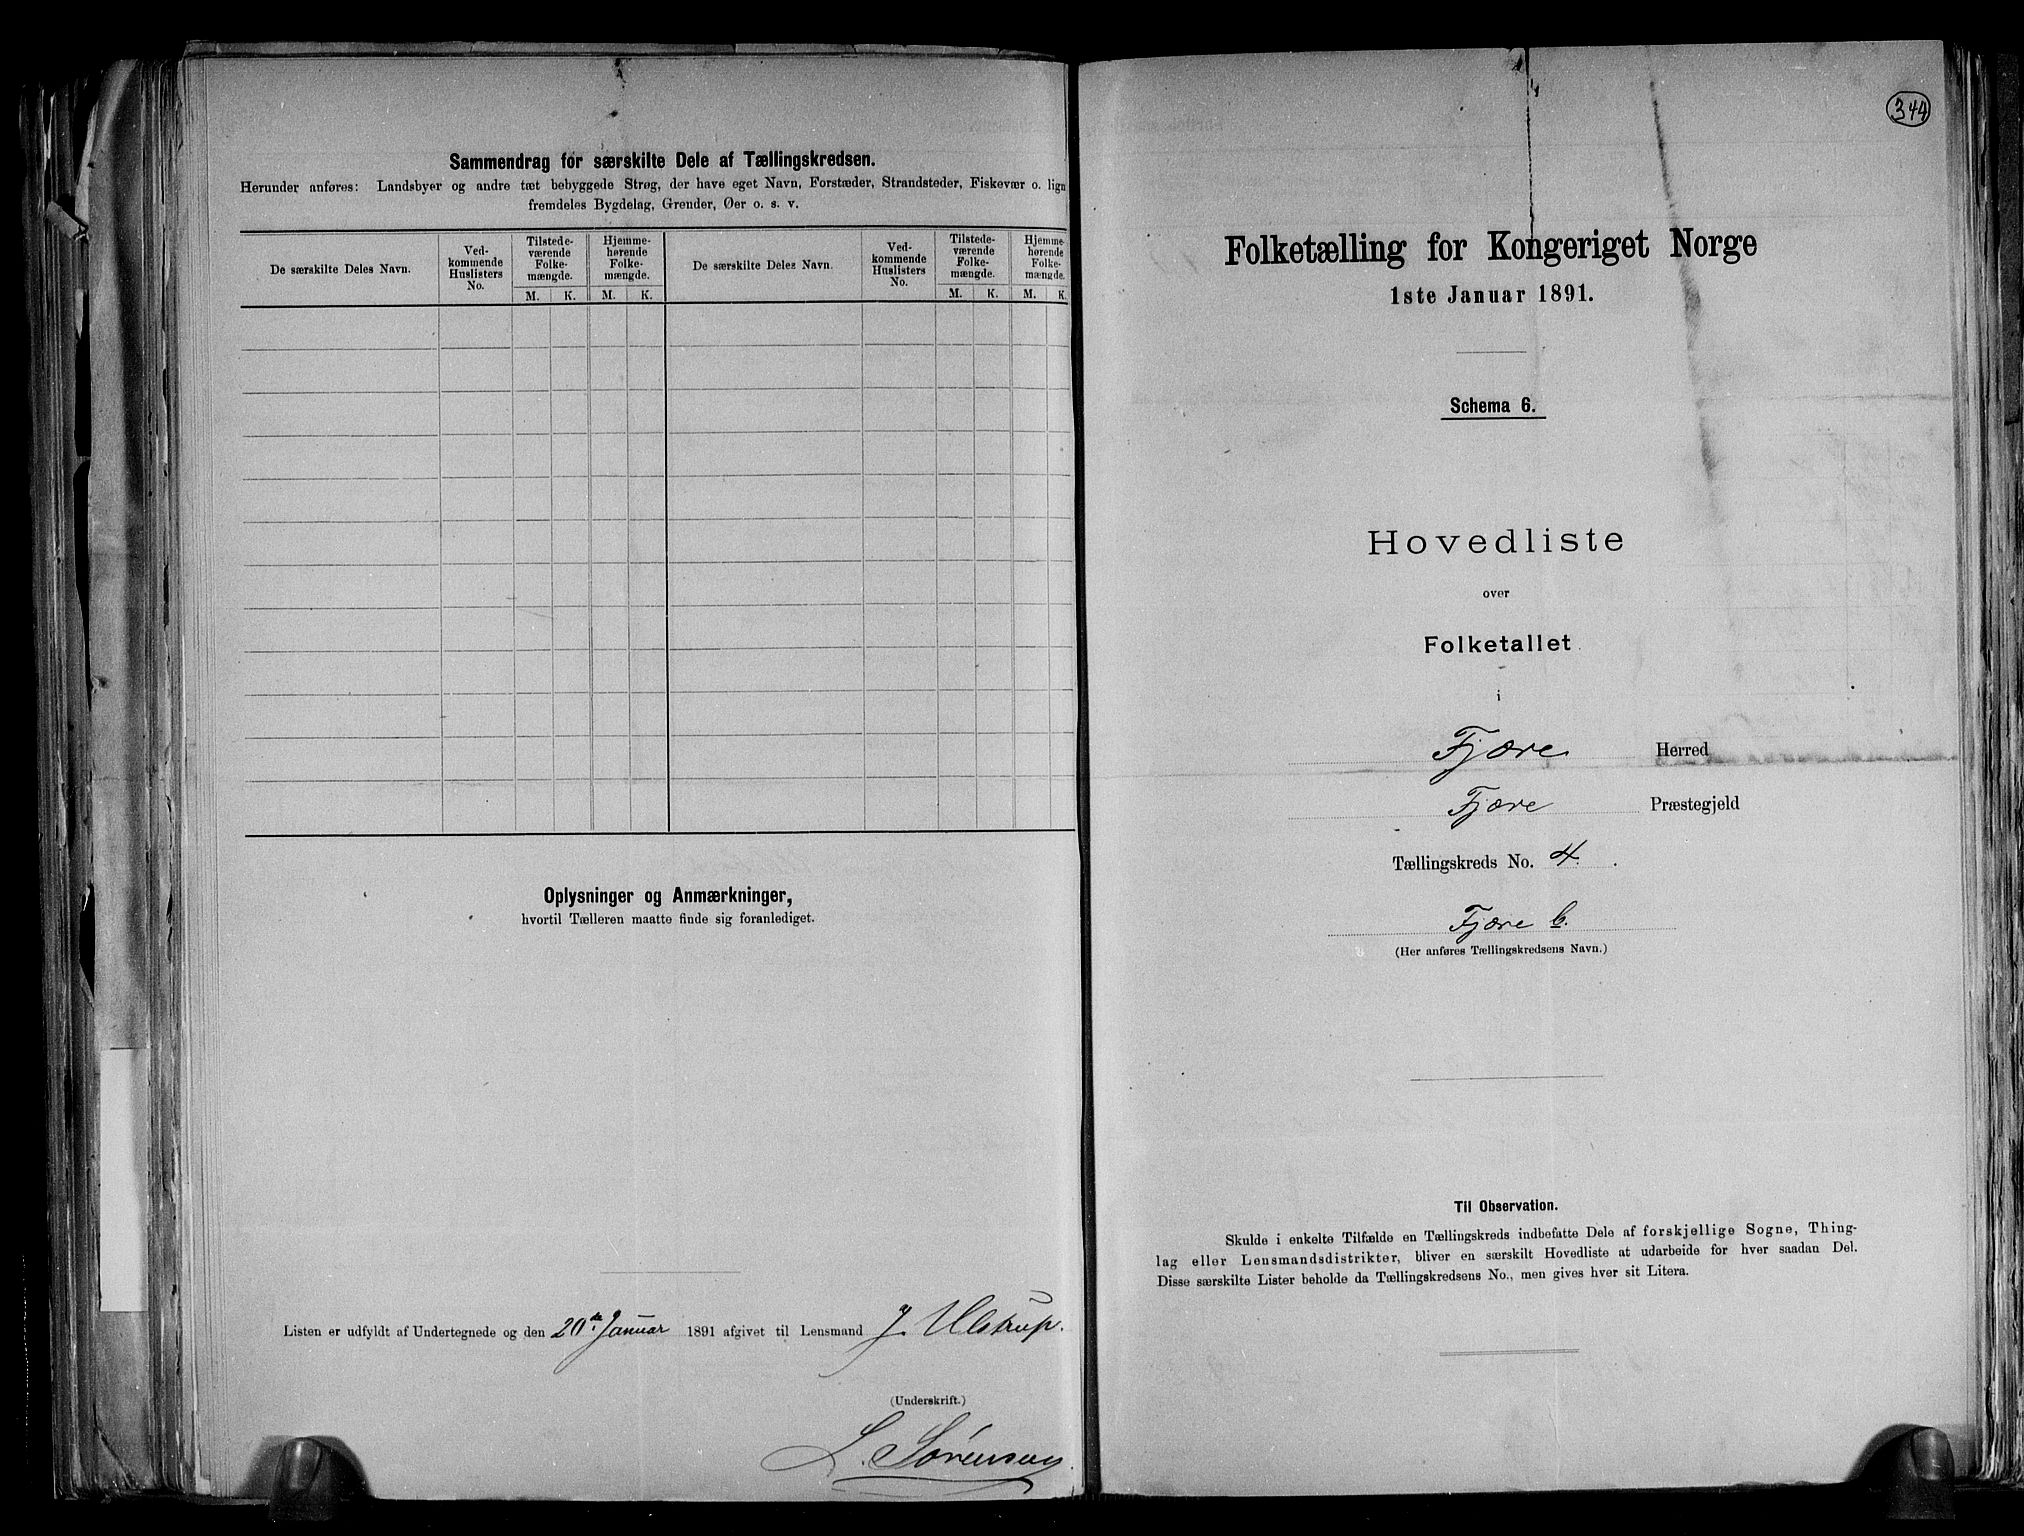 Sammendrag for særskilte Dele af Tællingskredsen.
Herunder anføres: Landsbyer og andre tæt bebyggede Strøg, der have eget Navn, Forstæder, Strandsteder, Fiskevær o. lign
fremdeles Bygdelag, Grender, Øer o. s. v.
De særskilte Deles Navn.
Ved-
kommende
Huslisters
No.
Tilstede-
værende
Folke-
mængde.
Hjemme-
hørende
Folke-
mængde.
M. K. M. K.
De særskilte Deles Navn.
Ved-
kommende
Huslisters
No.
Tilstede-
værende
Folke-
mængde.
Hjemme-
hørende
Folke-
mængde.
M. K. M. K.
Oplysninger og Anmærkninger,
hvortil Tælleren maatte finde sig foranlediget.
Listen er udfyldt af Undertegnede og den 20de Januar 1891 afgivet til Lensmand J. Ulstrup.
(Underskrift.)
L. Sørensen
344
Folketælling for Kongeriget Norge
1ste Januar 1891.
Schema 6.
Hovedliste
over
Folketallet
i
Fjære Herred
Fjære Præstegjeld
Tællingskreds No. 4.
Fjære b.
(Her anføres Tællingskredsens Navn.)
Til Observation.
Skulde i enkelte Tilfælde en Tællingskreds indbefatte Dele af forskjellige Sogne, Thing-
lag eller Lensmandsdistrikter, bliver en særskilt Hovedliste at udarbeide for hver saadan Del.
Disse særskilte Lister beholde da Tællingskredsens No., men gives hver sit Litera.